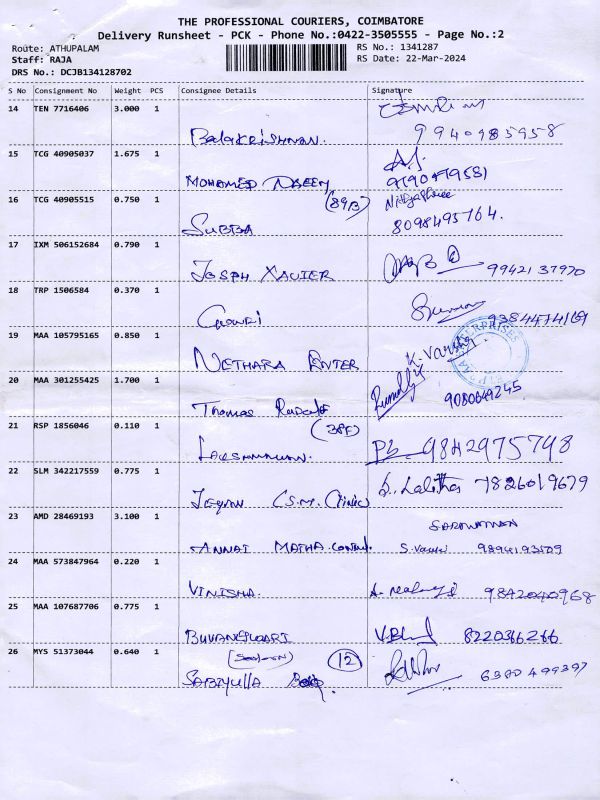 THE PROFESSIONAL COURIERS, COIMBATORE
Delivery Runsheet - PCK - Phone No.:0422-3505555 - Page No.:2
Route: ATHUPALAM RS No.: 1341287
Staff: RAJA RS Date: 22-Mar-2024
DRS No.: DCJB134128702
S No Consignment No Weight PCS Consignee Details Signature
14 TEN 7716406 3.000 1
Balakrishnan. 9940985958
15 TCG 40905037 1.675 1
MOHAMED NASEEM
16 TCG 40905515 0.750 1 (89B) Nithyashree
SUBBA 8098495764.
17 IXM 506152684 0.790 1
JOSPH XAVIER 9942137970
18 TRP 1506584 0.370 1
GOWRI 9384474169
19 MAA 105795165 0.850 1 K. Varsha
NETHARA ENTER
20 MAA 301255425 1.700 1 9080649245
Thomas
21 RSP 1856046 0.110 1 (38F)
LAKSHMANAN. 9842975798
22 SLM 342217559 0.775 1 S. Lalitha 7826019679
JEYAN (S.M. Clinic)
23 AMD 28469193 3.100 1 SARAVANAN
ANNAI MATHA 9894193509
24 MAA 573847964 0.220 1
VINISHA. 9842040968
25 MAA 107687706 0.775 1
BUVANESWARI 8220366266
26 MYS 51373044 0.640 1 (12)
SABIYULLA 6380499397